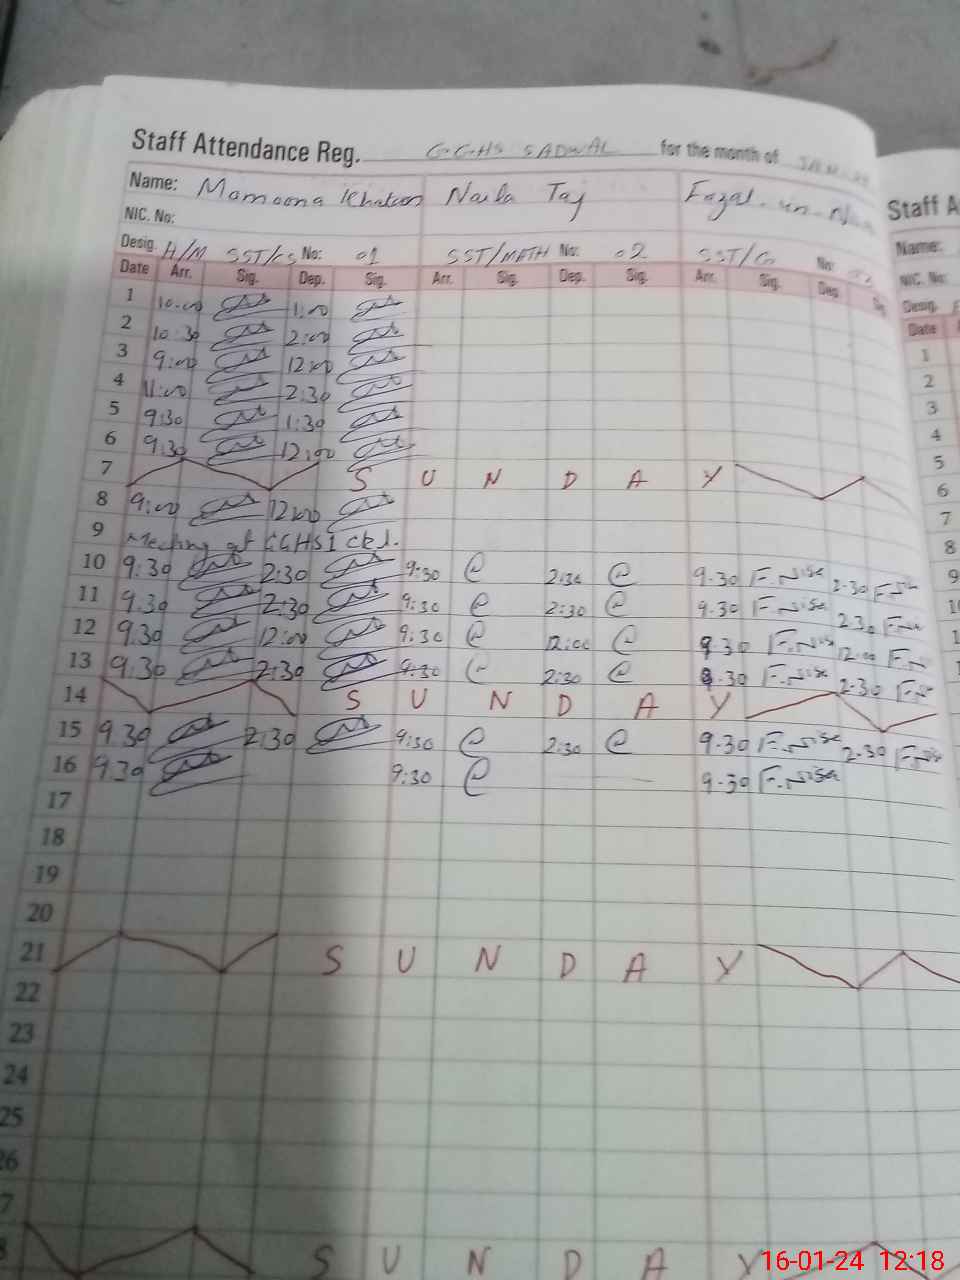 Staff Attendance Reg. G.G.H.S SADWAL for the month of
Name: Momoona Khatoon Naila Taj Fazal-un-
NIC. No:
Desig. H/M SST/CS No: 01 SST/MATH No: 02 SST/G No:
Date Arr. Sig. Dep. Sig. Arr. Sig. Dep. Sig. Arr. Sig. Dep. Sig.
1 10:00 1:00
2 10:30 2:00
3 9:00 12:00
4 11:00 2:30
5 9:30 1:30
6 9:30 12:00
7 S U N D A Y
8 9:00 12:00
9 Meeting at GGHS1
10 9:30 2:30 9:30 2:30 9.30 F.Nisa 2.30
11 9:30 2:30 9:30 2:30 9.30 F.Nisa 2.30
12 9:30 12:00 9:30 12:00 9.30 F.Nisa 12.00
13 9:30 2:30 9:30 2:30 9.30 F.Nisa 2.30
14 S U N D A Y
15 9:30 2:30 9:30 2:30 9.30 F.Nisa 2.30 F.Nisa
16 9:30 9:30 9.30 F.Nisa
17
18
19
20
21 S U N D A Y
22
23
24
25
26
7
8 S U N D A Y
Staff A
Name:
NIC. No:
Desig.
Date
1
2
3
4
5
6
7
8
9
16-01-24 12:18